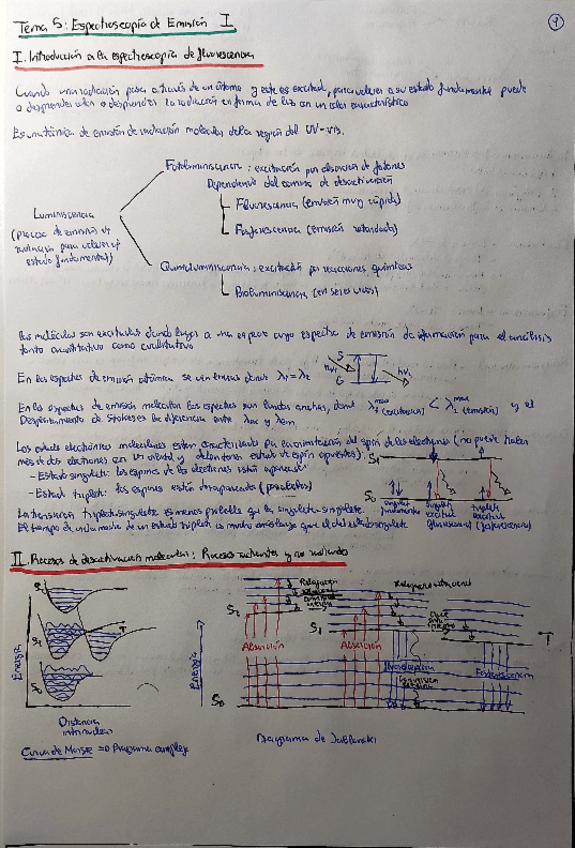 Tema 5: Espectroscopía de Emisión I
1
I. Introducción a la espectroscopía de fluorescencia
Cuando una radiación pasa a través de un átomo y este es excitado, para volver a su estado fundamental puede
o desprender calor o desprender la radiación en forma de luz con un color característico
Es una técnica de emisión de radiación molecular de la región del UV-vis.
Fotoluminiscencia: excitación por absorción de fotones
Dependiendo del camino de desactivación
Fluorescencia (emisión muy rápida)
Fosforescencia (emisión retardada)
Luminiscencia
(proceso de emisión de
radiación para volver al
estado fundamental)
Quimioluminiscencia: excitación por reacciones químicas
Bioluminiscencia (en seres vivos)
Las moléculas son excitadas dando lugar a una especie cuyo espectro de emisión da información para el análisis
tanto cuantitativo como cualitativo
En los espectros de emisión atómica se ven líneas donde λ1=λ2
En los espectros de emisión molecular los espectros son bandas anchas, donde λ1 max (excitación) < λ2 max (emisión) y el
Desplazamiento de Stokes es la diferencia entre λex y λem
Los estados electrónicos moleculares están caracterizados por la orientación del espín de los electrones (no puede haber
más de dos electrones en un orbital y deben tener estado de espín opuestos):
- Estado singulete: los espines de los electrones están apareados
- Estado triplete: los espines están desapareados (paralelos)
S1
S0
singulete fundamental
singulete excitado (fluorescencia)
triplete excitado (fosforescencia)
La transición triplete-singulete es menos probable que la singulete-singulete.
El tiempo de vida media de un estado triplete es mucho más largo que el del estado singulete
II. Procesos de desactivación molecular: Procesos radiantes y no radiantes
S2
S1
S0
T
Energía
Distancia
internuclear
Curva de Morse => Diagrama complejo
Energía
S2
S1
S0
T
Absorción
Absorción
Relajación
Conversión
Fosforescencia
Diagrama de Jablonski